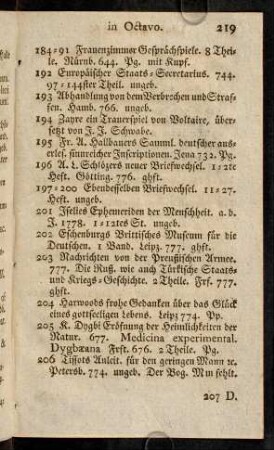 in Octavo. 219
184=91 Frauenzimmer Gesprächspiele. 8 Thei-
le. Nürnb. 644. Pg. mit Kupf.
192 Europäischer Staats-Secretarius. 744.
97-144ster Theil. ungeb.
193 Abhandlung von dem Verbrechen und Straf-
fen. Hamb. 766. ungeb.
194 Zayre ein Trauerspiel von Voltaire, über-
setzt von J. J. Schwabe.
195 Fr. A. Hallbauers Samml. deutscher aus-
erles. sinnreicher Inscriptionen. Jena 732. Pg.
196 A. L. Schlözers neuer Briefwechsel. 1=2te
Heft. Götting. 776. ghft.
197=200 Ebendesselben Briefwechsel. 11=27.
Heft. ungeb.
201 Iselies Ephemeriden der Menschheit. a. d.
J. 1778. 1=12tes St. ungeb.
202 Eschenburgs Brittisches Museum für die
Deutschen. 1 Band. Leipz. 777. ghft.
203 Nachrichten von der Preußischen Armee.
777. Die Ruß. wie auch Türkische Staats-
und Kriegs-Geschichte. 2 Theile. Frf. 777.
ghft.
204 Harwoods frohe Gedanken über das Glück
eines gottseeligen Lebens. Leipz 774. Pp.
205 K. Dygbi Eröfnung der Heimlichkeiten der
Natur. 677. Medicina experimental.
Dygbæana Frft. 676. 2 Theile. Pg.
206 Tissots Anleit. für den geringen Mann ꝛc.
Petersb. 774. ungeb. Der Bog. Mm fehlt.
207 D.